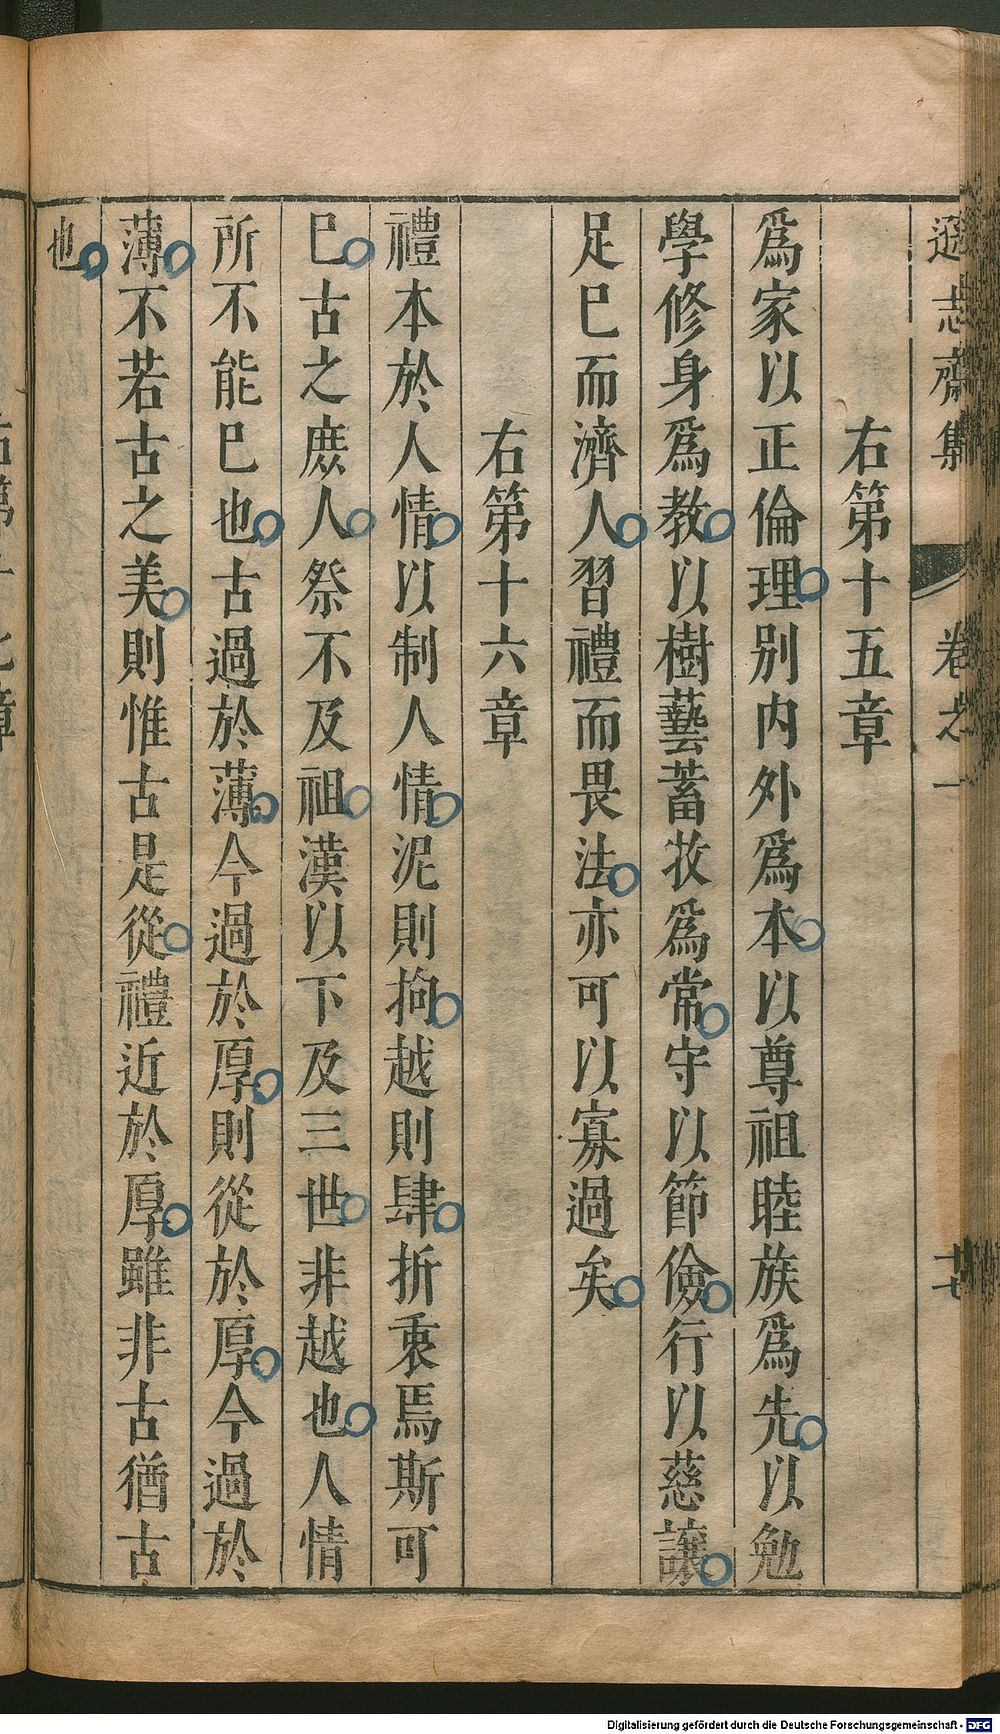 遜志齋集 卷之一 十七
右第十五章
爲家以正倫理別内外爲本以尊祖睦族爲先以勉
學修身爲教以樹藝蓄牧爲常守以節儉行以慈讓
足巳而濟人習禮而畏法亦可以寡過矣
右第十六章
禮本於人情以制人情泥則拘越則肆折衷焉斯可
巳古之庶人祭不及祖漢以下及三世非越也人情
所不能巳也古過於薄今過於厚則從於厚今過於
薄不若古之美則惟古是從禮近於厚雖非古猶古
也
Digitalisierung gefördert durch die Deutsche Forschungsgemeinschaft - DFG